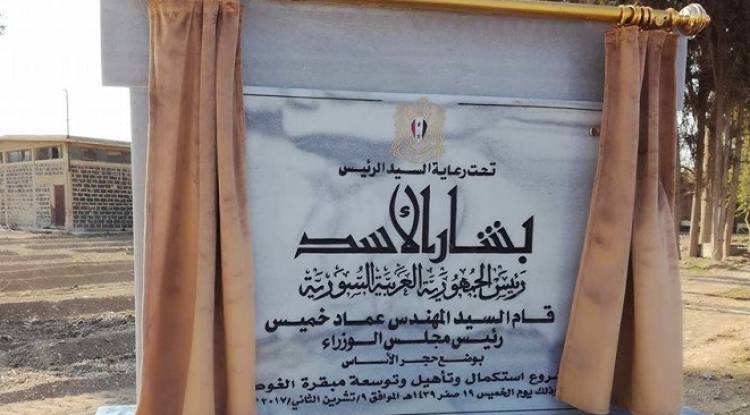 تحت رعاية السيد الرئيس
بشار الأسد
رئيس الجمهورية العربية السورية
قام السيد المهندس عماد خميس
رئيس مجلس الوزراء
بوضع حجر الأساس
روع استكمال وتأهيل وتوسعة مبقرة الغوط
وذلك يوم الخميس ١٩ صفر ١٤٣٩هـ الموافق ٩/تشرين الثاني/٢٠١٧